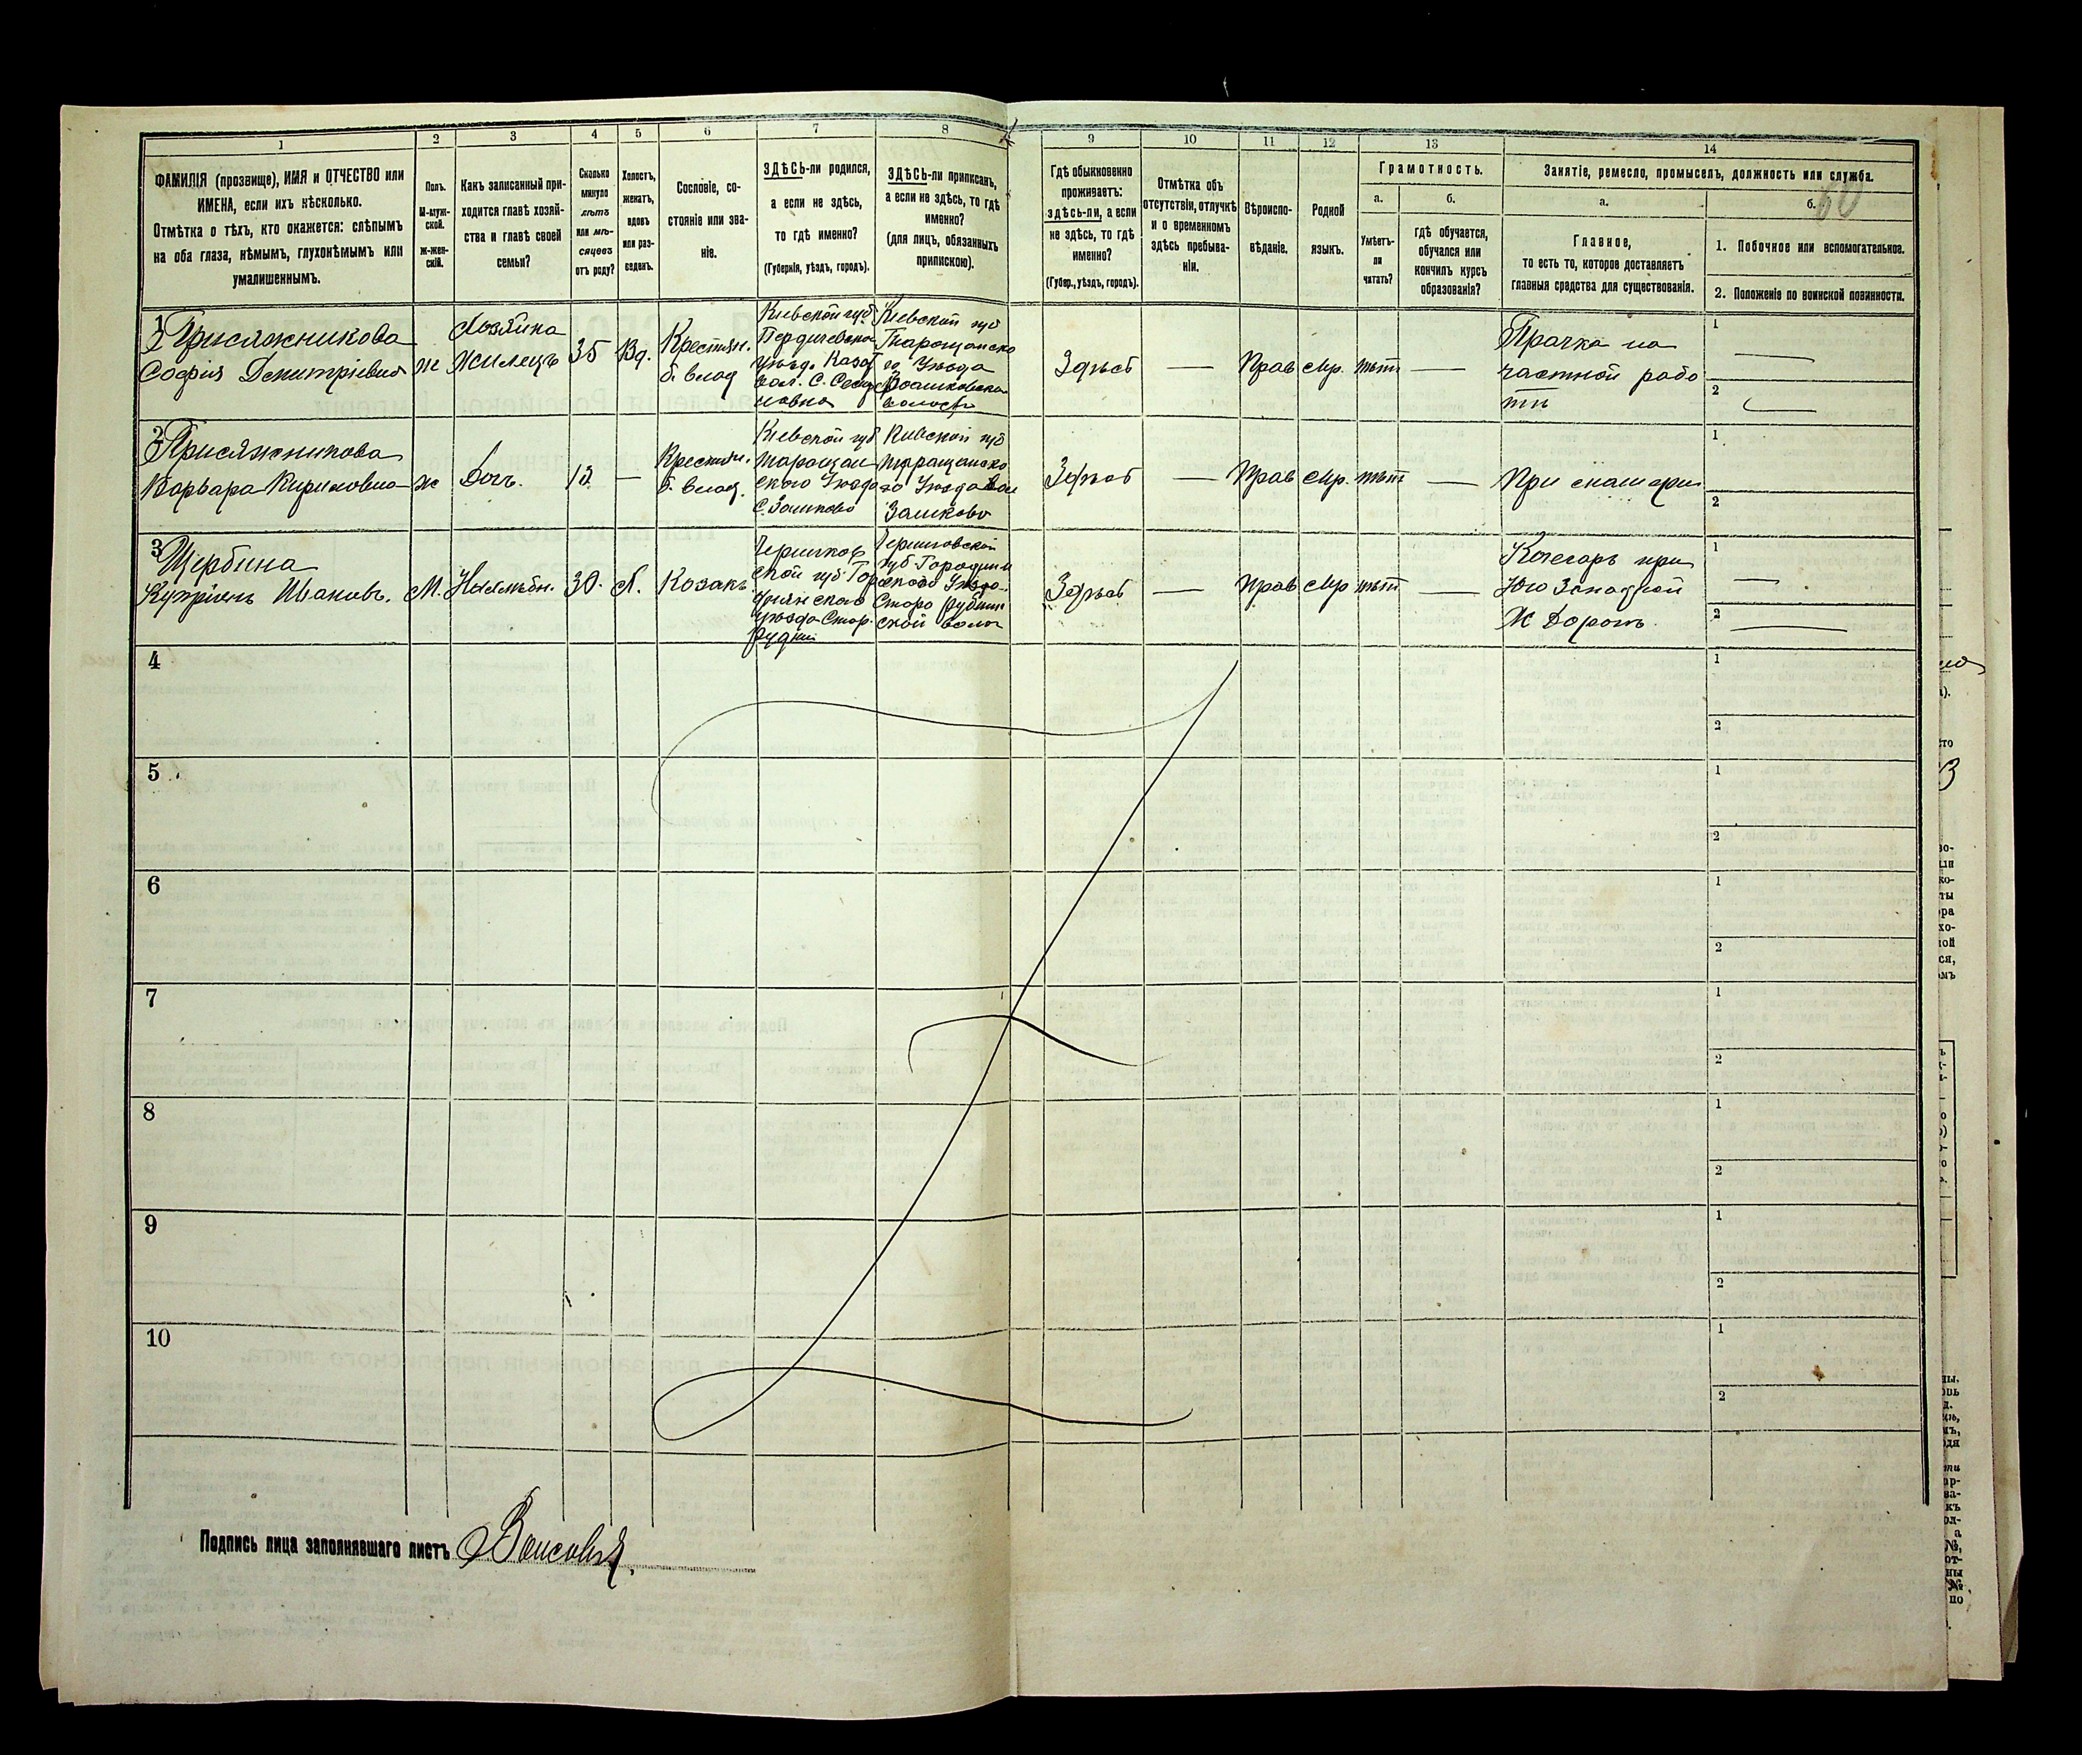 1
2
3
4
5
6
7
8
9
10
11
12
13
14
ФАМИЛІЯ (прозвище), ИМЯ и ОТЧЕСТВО или
ИМЕНА, если ихъ нѣсколько.
Отмѣтка о тѣхъ, кто окажется: слѣпымъ
на оба глаза, нѣмымъ, глухонѣмымъ или
умалишеннымъ.
Полъ.
М-муж-
ской.
Ж-жен-
скій.
Какъ записанный при-
ходится главѣ хозяй-
ства и главѣ своей
семьи?
Сколько
минуло
лѣтъ
или мѣ-
сяцевъ
отъ роду?
Холостъ,
женатъ,
вдовъ
или раз-
веденъ.
Сословіе, со-
стояніе или зва-
ніе.
ЗДѢСЬ-ли родился,
а если не здѣсь,
то гдѣ именно?
(Губернія, уѣздъ, городъ).
ЗДѢСЬ-ли приписанъ,
а если не здѣсь, то гдѣ
именно?
(для лицъ, обязанныхъ
припискою).
Гдѣ обыкновенно
проживаетъ:
здѣсь-ли, а если
не здѣсь, то гдѣ
именно?
(Губер., уѣздъ, городъ).
Отмѣтка объ
отсутствіи, отлучкѣ
и о временномъ
здѣсь пребыва-
ніи.
Вѣроиспо-
вѣданіе.
Родной
языкъ.
Грамотность.
а.
Умѣетъ-
ли
читать?
б.
гдѣ обучается,
обучался или
кончилъ курсъ
образованія?
Занятіе, ремесло, промыселъ, должность или служба.
60
а.
Главное,
то есть то, которое доставляетъ
главныя средства для существованія.
б.
1. Побочное или вспомогательное.
2. Положеніе по воинской повинности.
1
Присяжникова
Софія Дмитріевна
ж
Хозяйка
Жилецъ
35
Вд.
Крестьян.
б. влад
Кіевской губ
Бердичевска
Уѣзд. Казат
вол. С. Сест
новка
Кіевской губ
Таращанско
го Уѣзда
волость
Здѣсь
—
Прав
Мр.
нѣтъ
Прачка на
частной рабо
тѣ
1
2
2
Присяжникова
Варвара Кириловна
ж
Дочь.
12
—
Крестьян.
б. влад.
Кіевской губ
Таращан
ского Уѣзда
С. Зашково
Кіевской губ
Таращанско
го Уѣзда Вол
Зашково
Здѣсь
—
Прав
Мр.
нѣтъ
—
При матери
1
2
3
Щербина
Купріянъ Ивановъ.
М.
30.
Х.
Козакъ
Чернигов
ской губ Гор
нянского
Уѣзда Стар.
Рудни
Черниговской
губ Городнян
ского Уѣзда
Старо Рудин
ской волос
Здѣсь
—
Прав
Мр
нѣтъ
—
Кочегаръ при
Юго Западной
Ж Дорогѣ.
1
2
4
1
2
5
1
2
6
1
2
7
1
2
8
1
2
9
1
2
10
1
2
Подпись лица заполнявшаго листъ